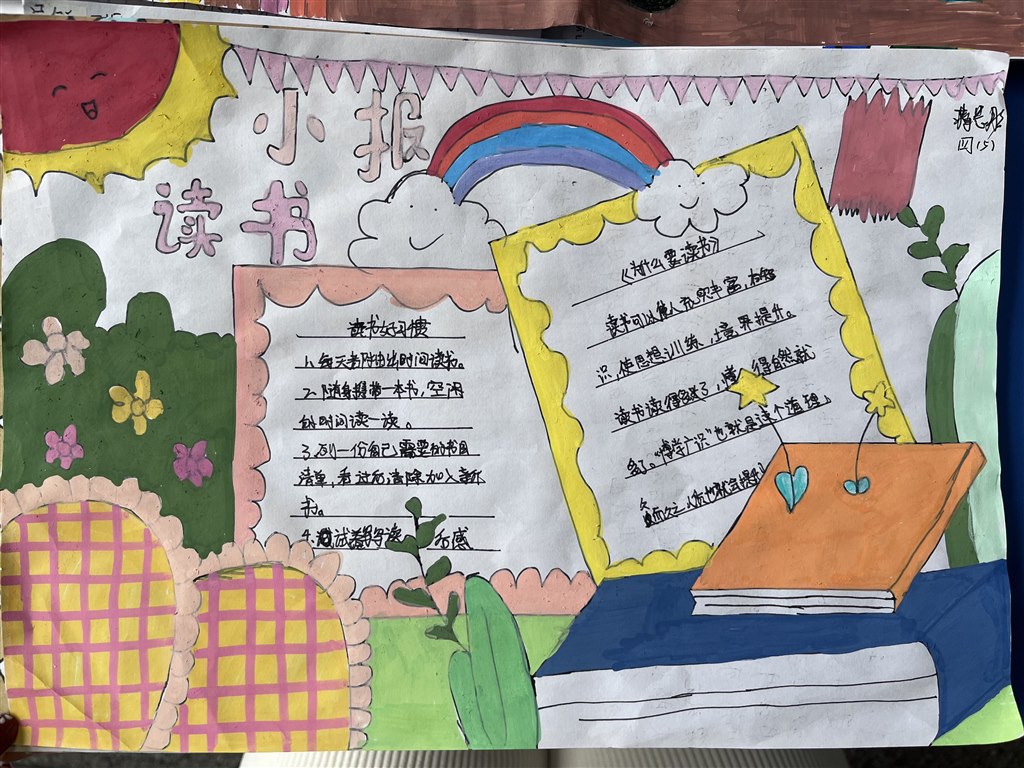 小报
读书
四(5)
读书好习惯
1、每天都抽出时间读书。
2、随身携带一本书，空闲
的时间读一读。
3、列一份自己需要的书目
清单，看过后清除加入新
书。
4、试着 读 感
《为什么要读书》
读书可以使人充 丰富，
识，使思想训练，境界提升。
读书读得多了，懂 得自然就
多了。“博学广识”也就是这个道理，
久而久之，